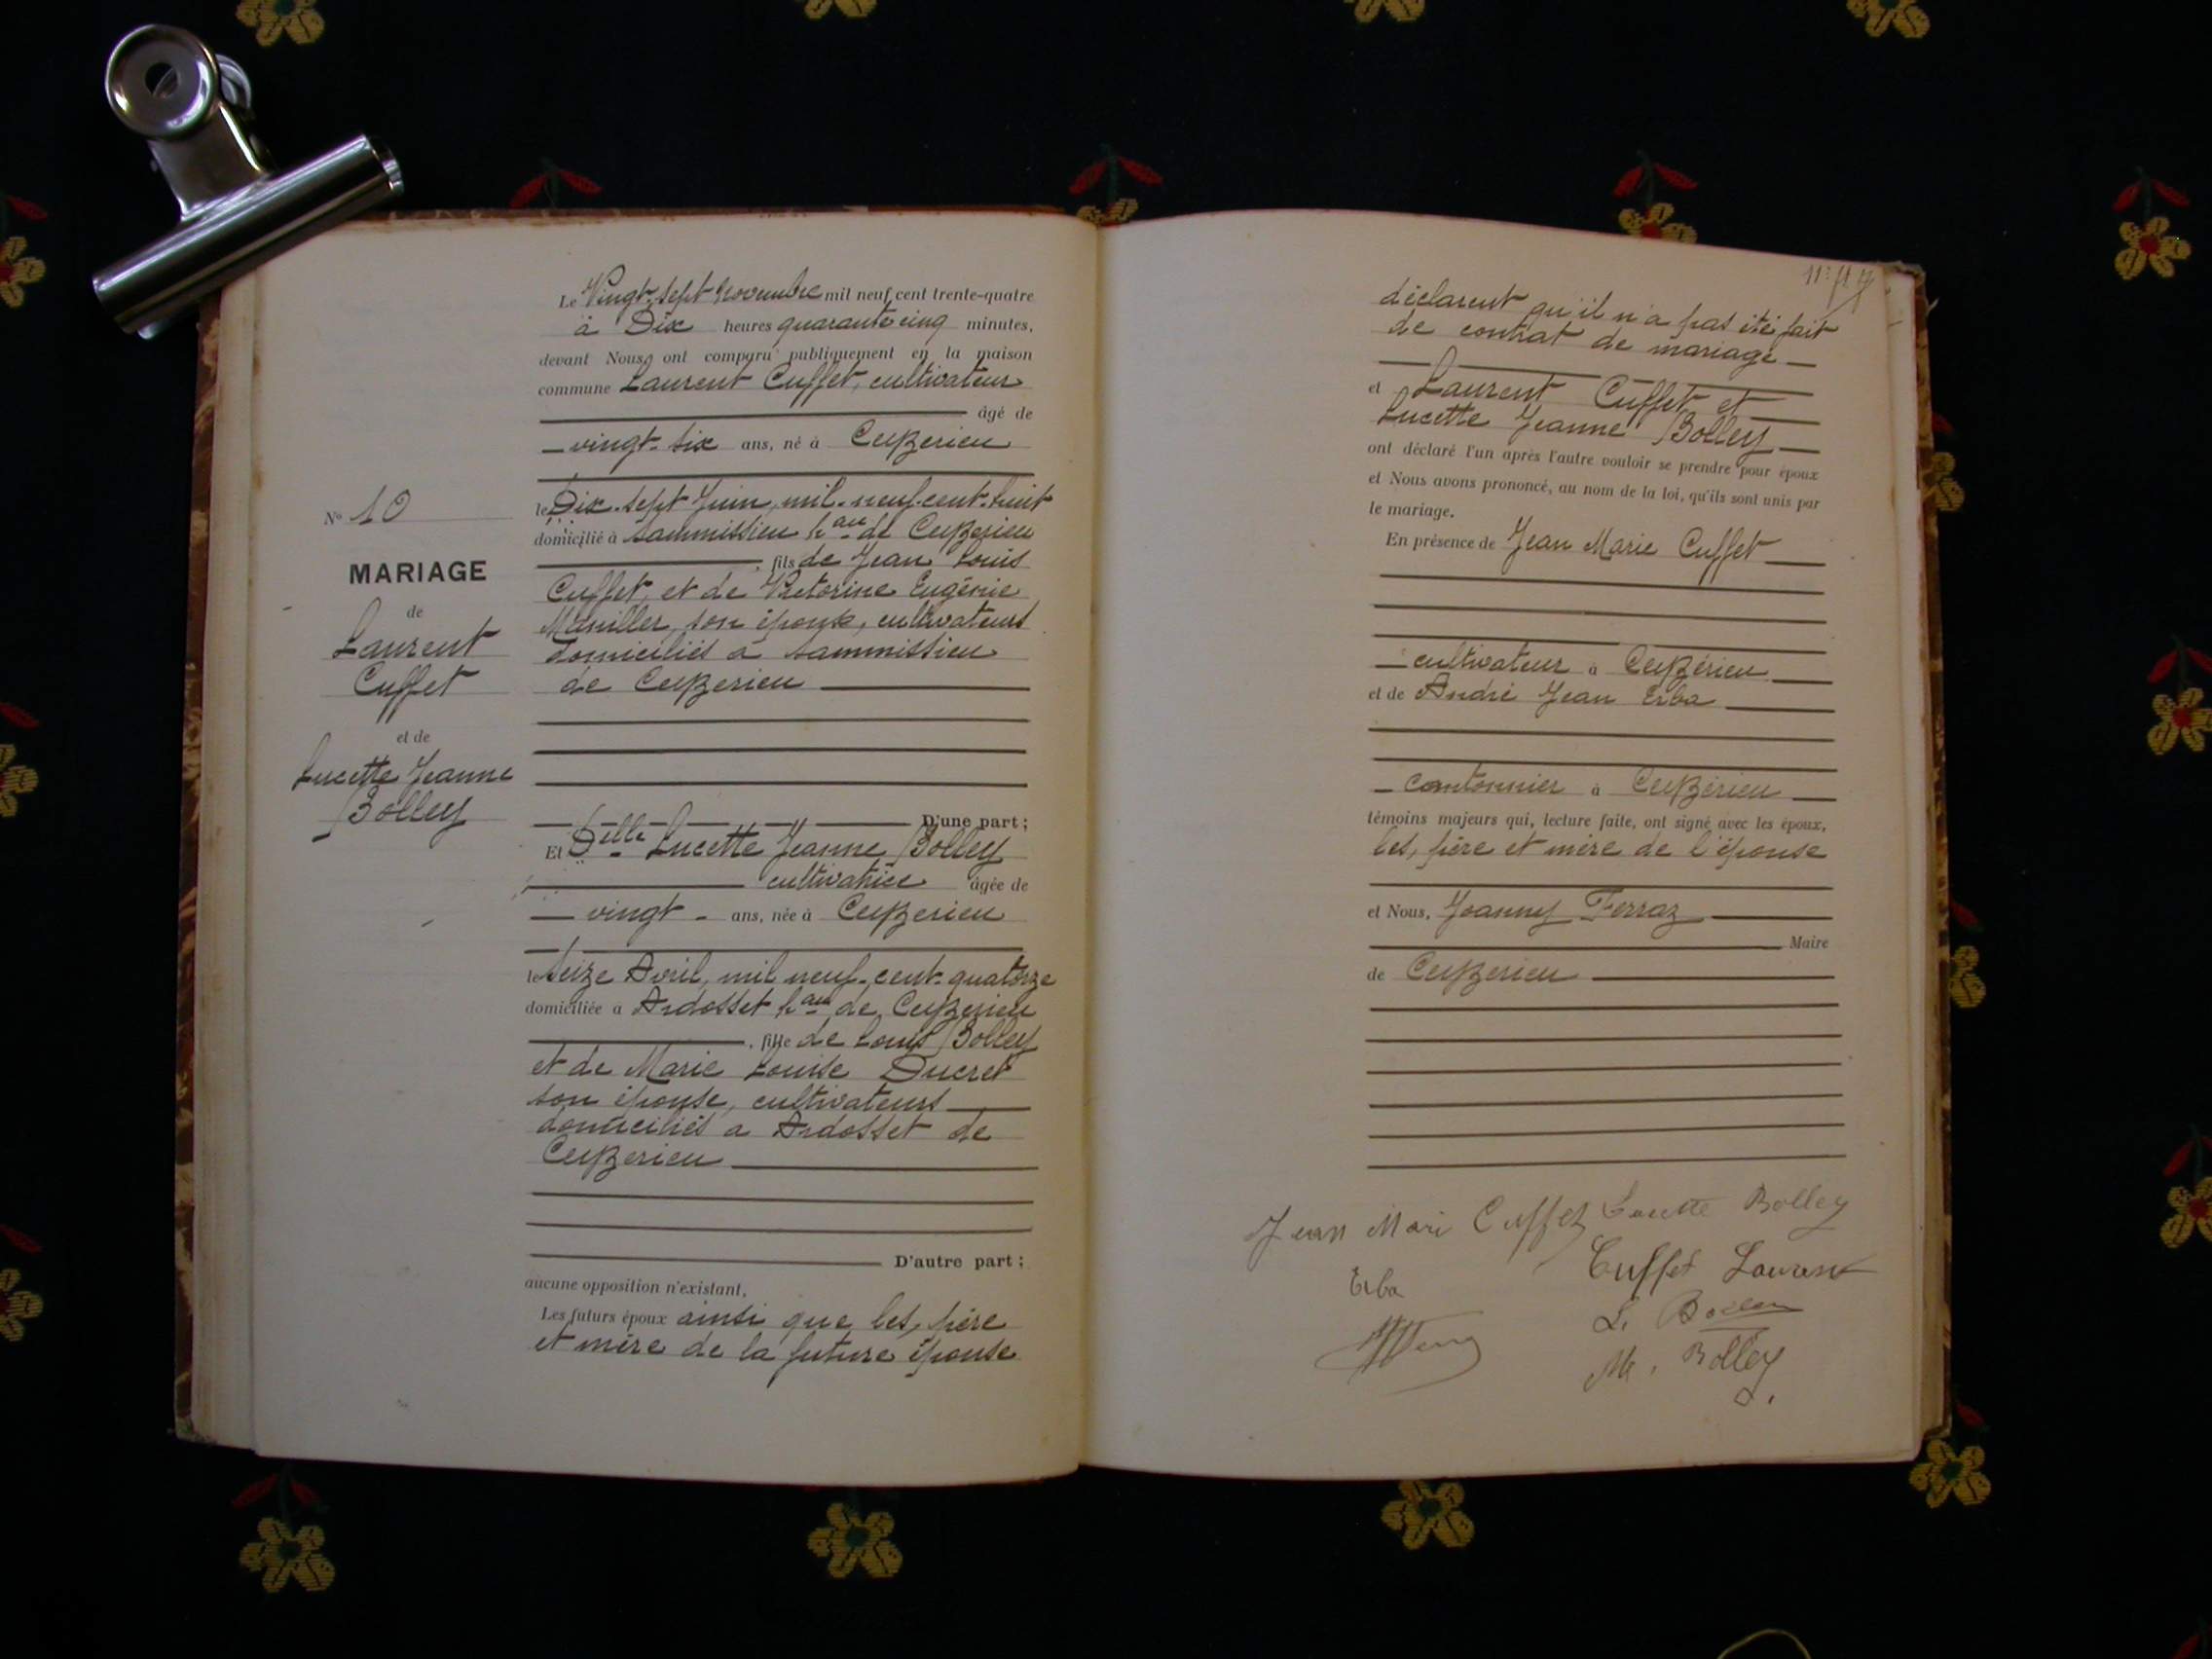 Le Vingt-sept Novembre mil neuf cent trente-quatre
à Dix heures quarante cinq minutes,
devant Nous, ont comparu publiquement en la maison
commune Laurent Cuffet, cultivateur
âgé de
vingt-six ans, né à Ceyzerieu
le Dix-sept Juin, mil-neuf-cent-huit
domicilié à Sammissieu hau de Ceyzerieu
, fils de Jean Louis
Cuffet, et de Victorine Eugénie
Maniller, son épouse, cultivateurs
domiciliés à Sammissieu
de Ceyzerieu
D'une part ;
Et Delle Lucette Jeanne Bolley
cultivatrice âgée de
vingt - ans, née à Ceyzerieu
le Seize Avril, mil neuf-cent-quatorze
domiciliée à Ardosset hau de Ceyzerieu
, fille de Louis Bolley
et de Marie Louise Ducret
son épouse, cultivateurs
domiciliés à Ardosset de
Ceyzerieu
D'autre part ;
aucune opposition n'existant,
Les futurs époux ainsi que les, père
et mère de la future épouse
No 10
MARIAGE
de
Laurent
Cuffet
et de
Lucette Jeanne
Bolley
déclarent qu'il n'a pas été fait
de contrat de mariage
et Laurent Cuffet et
Lucette Jeanne Bolley
ont déclaré l'un après l'autre vouloir se prendre pour époux
et Nous avons prononcé, au nom de la loi, qu'ils sont unis par
le mariage.
En présence de Jean Marie Cuffet
cultivateur à Ceyzérieu
et de André Jean Erba
cantonnier à Ceyzérieu
témoins majeurs qui, lecture faite, ont signé avec les époux,
les, père et mère de l'épouse
et Nous, Joanny Ferraz
Maire
de Ceyzerieu
Jean Mari Cuffet Lucette Bolley
Erba Cuffet Laurent
L. Bolley
M. Bolley